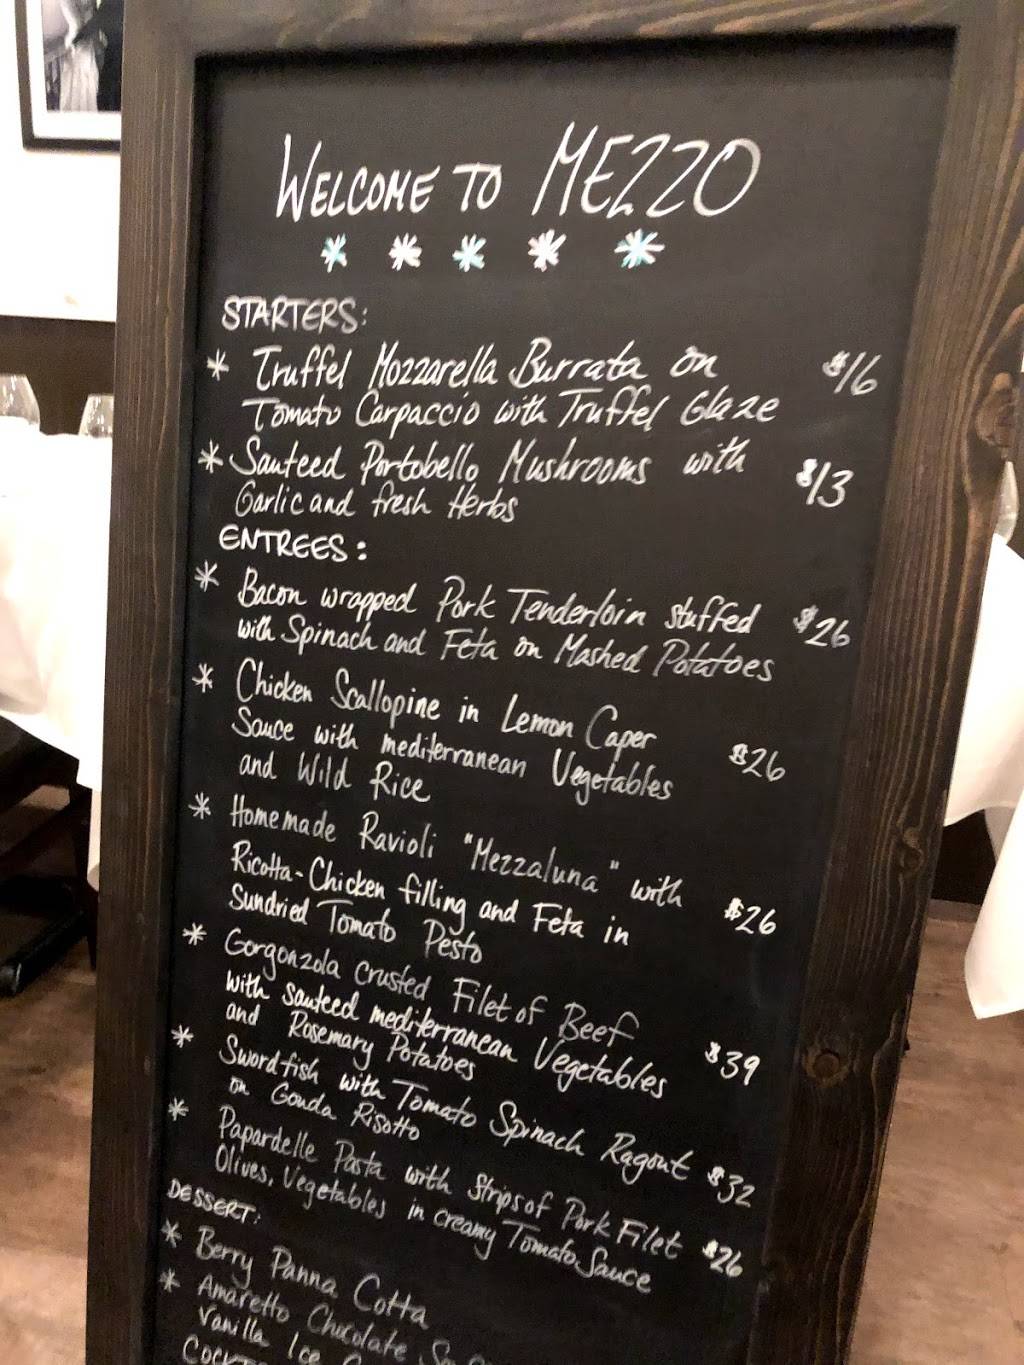 WELCOME TO MEZZO
* * * * *
STARTERS:
* Truffel Mozzarella Burrata on $16
Tomato Carpaccio with Truffel Glaze
* Sauteed Portobello Mushrooms with $13
Garlic and fresh Herbs
ENTREES:
* Bacon wrapped Pork Tenderloin stuffed $26
with Spinach and Feta on Mashed Potatoes
* Chicken Scallopine in Lemon Caper
Sauce with mediterranean Vegetables $26
and Wild Rice
* Homemade Ravioli "Mezzaluna" with
Ricotta-Chicken filling and Feta in $26
Sundried Tomato Pesto
* Gorgonzola crusted Filet of Beef
with sauteed mediterranean Vegetables $39
and Rosemary Potatoes
* Swordfish with Tomato Spinach Ragout $32
on Gouda Risotto
* Papardelle Pasta with Strips of Pork Filet $26
Olives, Vegetables in creamy Tomato Sauce
DESSERT:
* Berry Panna Cotta
* Amaretto Chocolate
Vanilla Ice